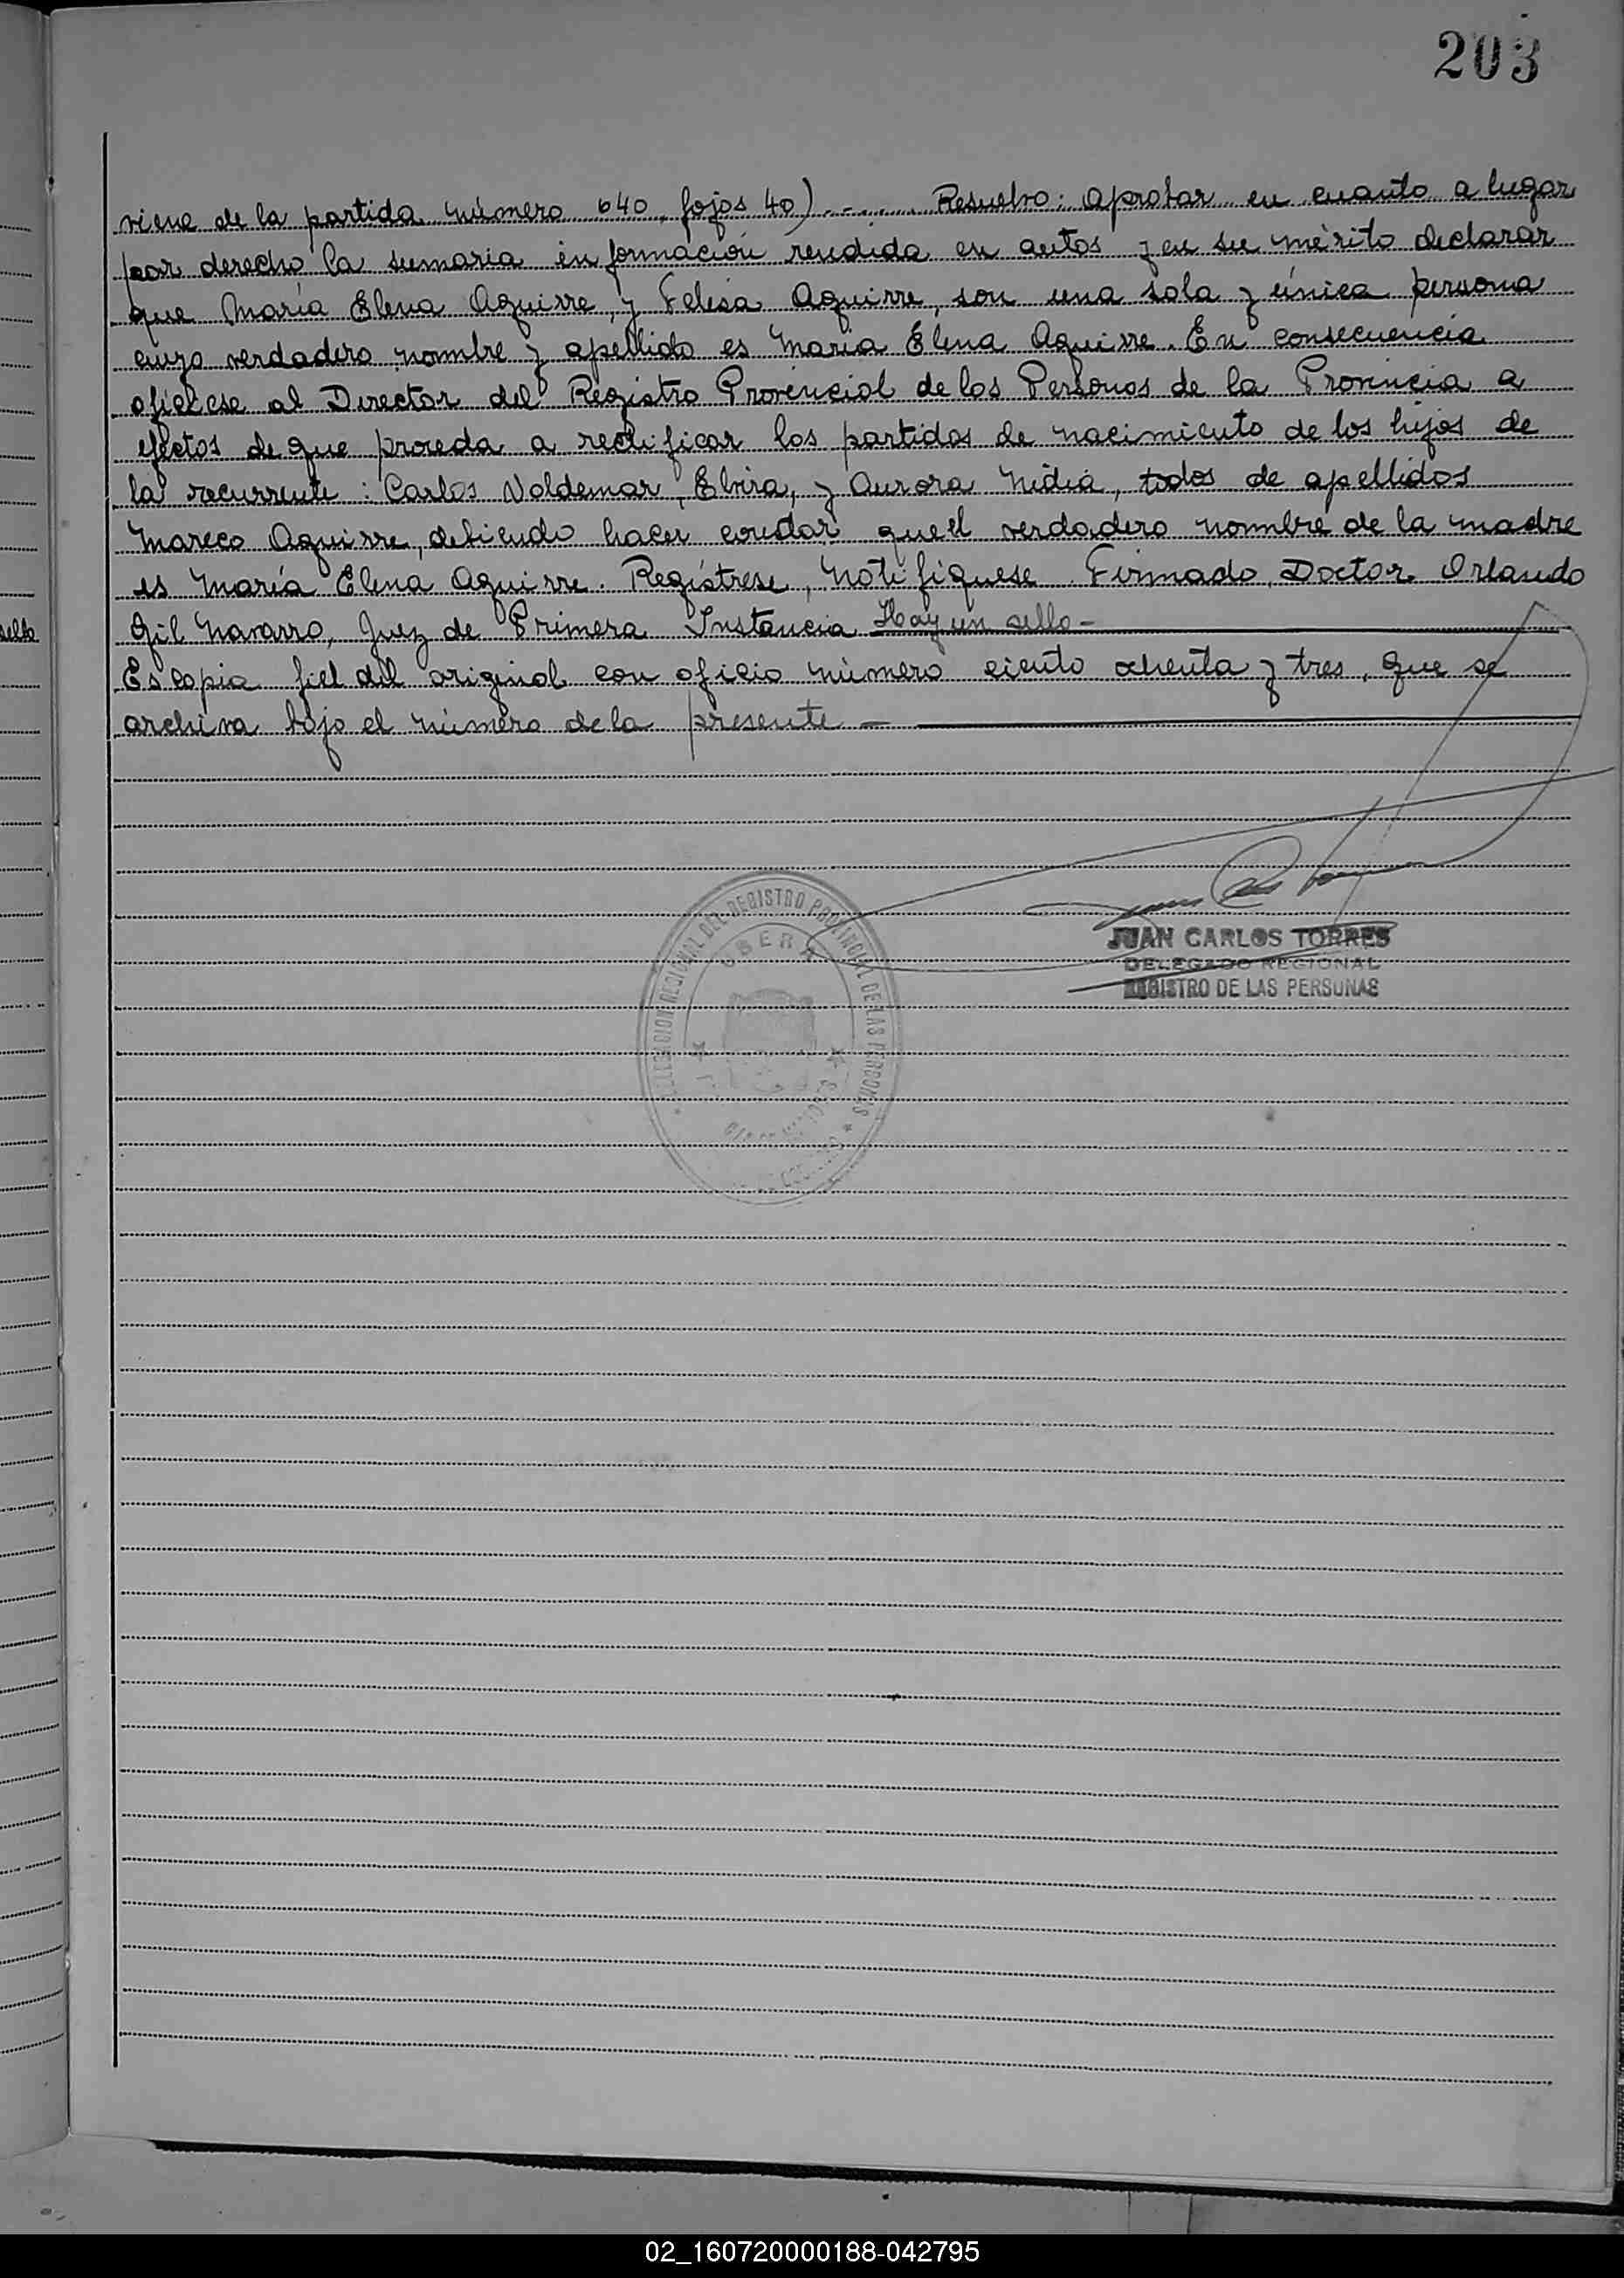 203
viene de la partida número 640, fojas 40) ..- ..... Resuelvo: Aprobar en cuanto a lugar
por derecho la sumaria información rendida en autos y en su mérito declarar
que María Elena Aguirre, y Felisa Aguirre, son una sola y única persona
cuyo verdadero nombre y apellido es María Elena Aguirre. En consecuencia
ofíciese al Director del Registro Provincial de las Personas de la Provincia a
efectos de que proceda a rectificar las partidas de nacimiento de los hijos de
la recurrente: Carlos Valdemar, Elvira, y Aurora Nidia, todos de apellidos
Mareco Aguirre, debiendo hacer constar que el verdadero nombre de la madre
es María Elena Aguirre. Regístrese, Notifíquese. Firmado, Doctor Orlando
Gil Navarro, Juez de Primera Instancia Hay un sello-
Es copia fiel del original con oficio número ciento ochenta y tres, que se
archiva bajo el número de la presente -
JUAN CARLOS TORRES
DELEGADO REGIONAL
REGISTRO DE LAS PERSONAS
DELEGACION REGIONAL DEL REGISTRO PROVINCIAL DE LAS PERSONAS
OBERA
02_160720000188-042795